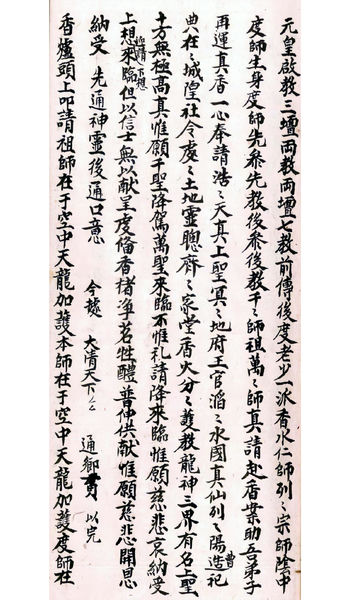 元皇啟教三壇兩教兩壇七教前傳後度老少一派香水仁師列〻宗師陰中
度師生身度師先叅先教後叅後教千〻師祖萬〻師真請赴香案助吾弟子
再運真香一心奉請浩〻天真上聖冥〻地府王官滔〻水國真仙列〻陽造祀
曹
典在〻城隍社令處〻土地靈聰齊〻家堂香火分〻護教龍神三界有名上聖
十方無極高真惟願千聖降駕萬聖來臨不惟礼請降來臨惟願慈悲哀納受
上想來臨但以信士無以献呈虔俻香楮凈茗牲醴普伸供献惟願慈悲開恩
迎請下想
納受 先通神靈後通口意 今據 大清天下〻 通鄉貫 以完
香爐頭上叩請祖師在于空中天龍加護本師在于空中天龍加護度師在